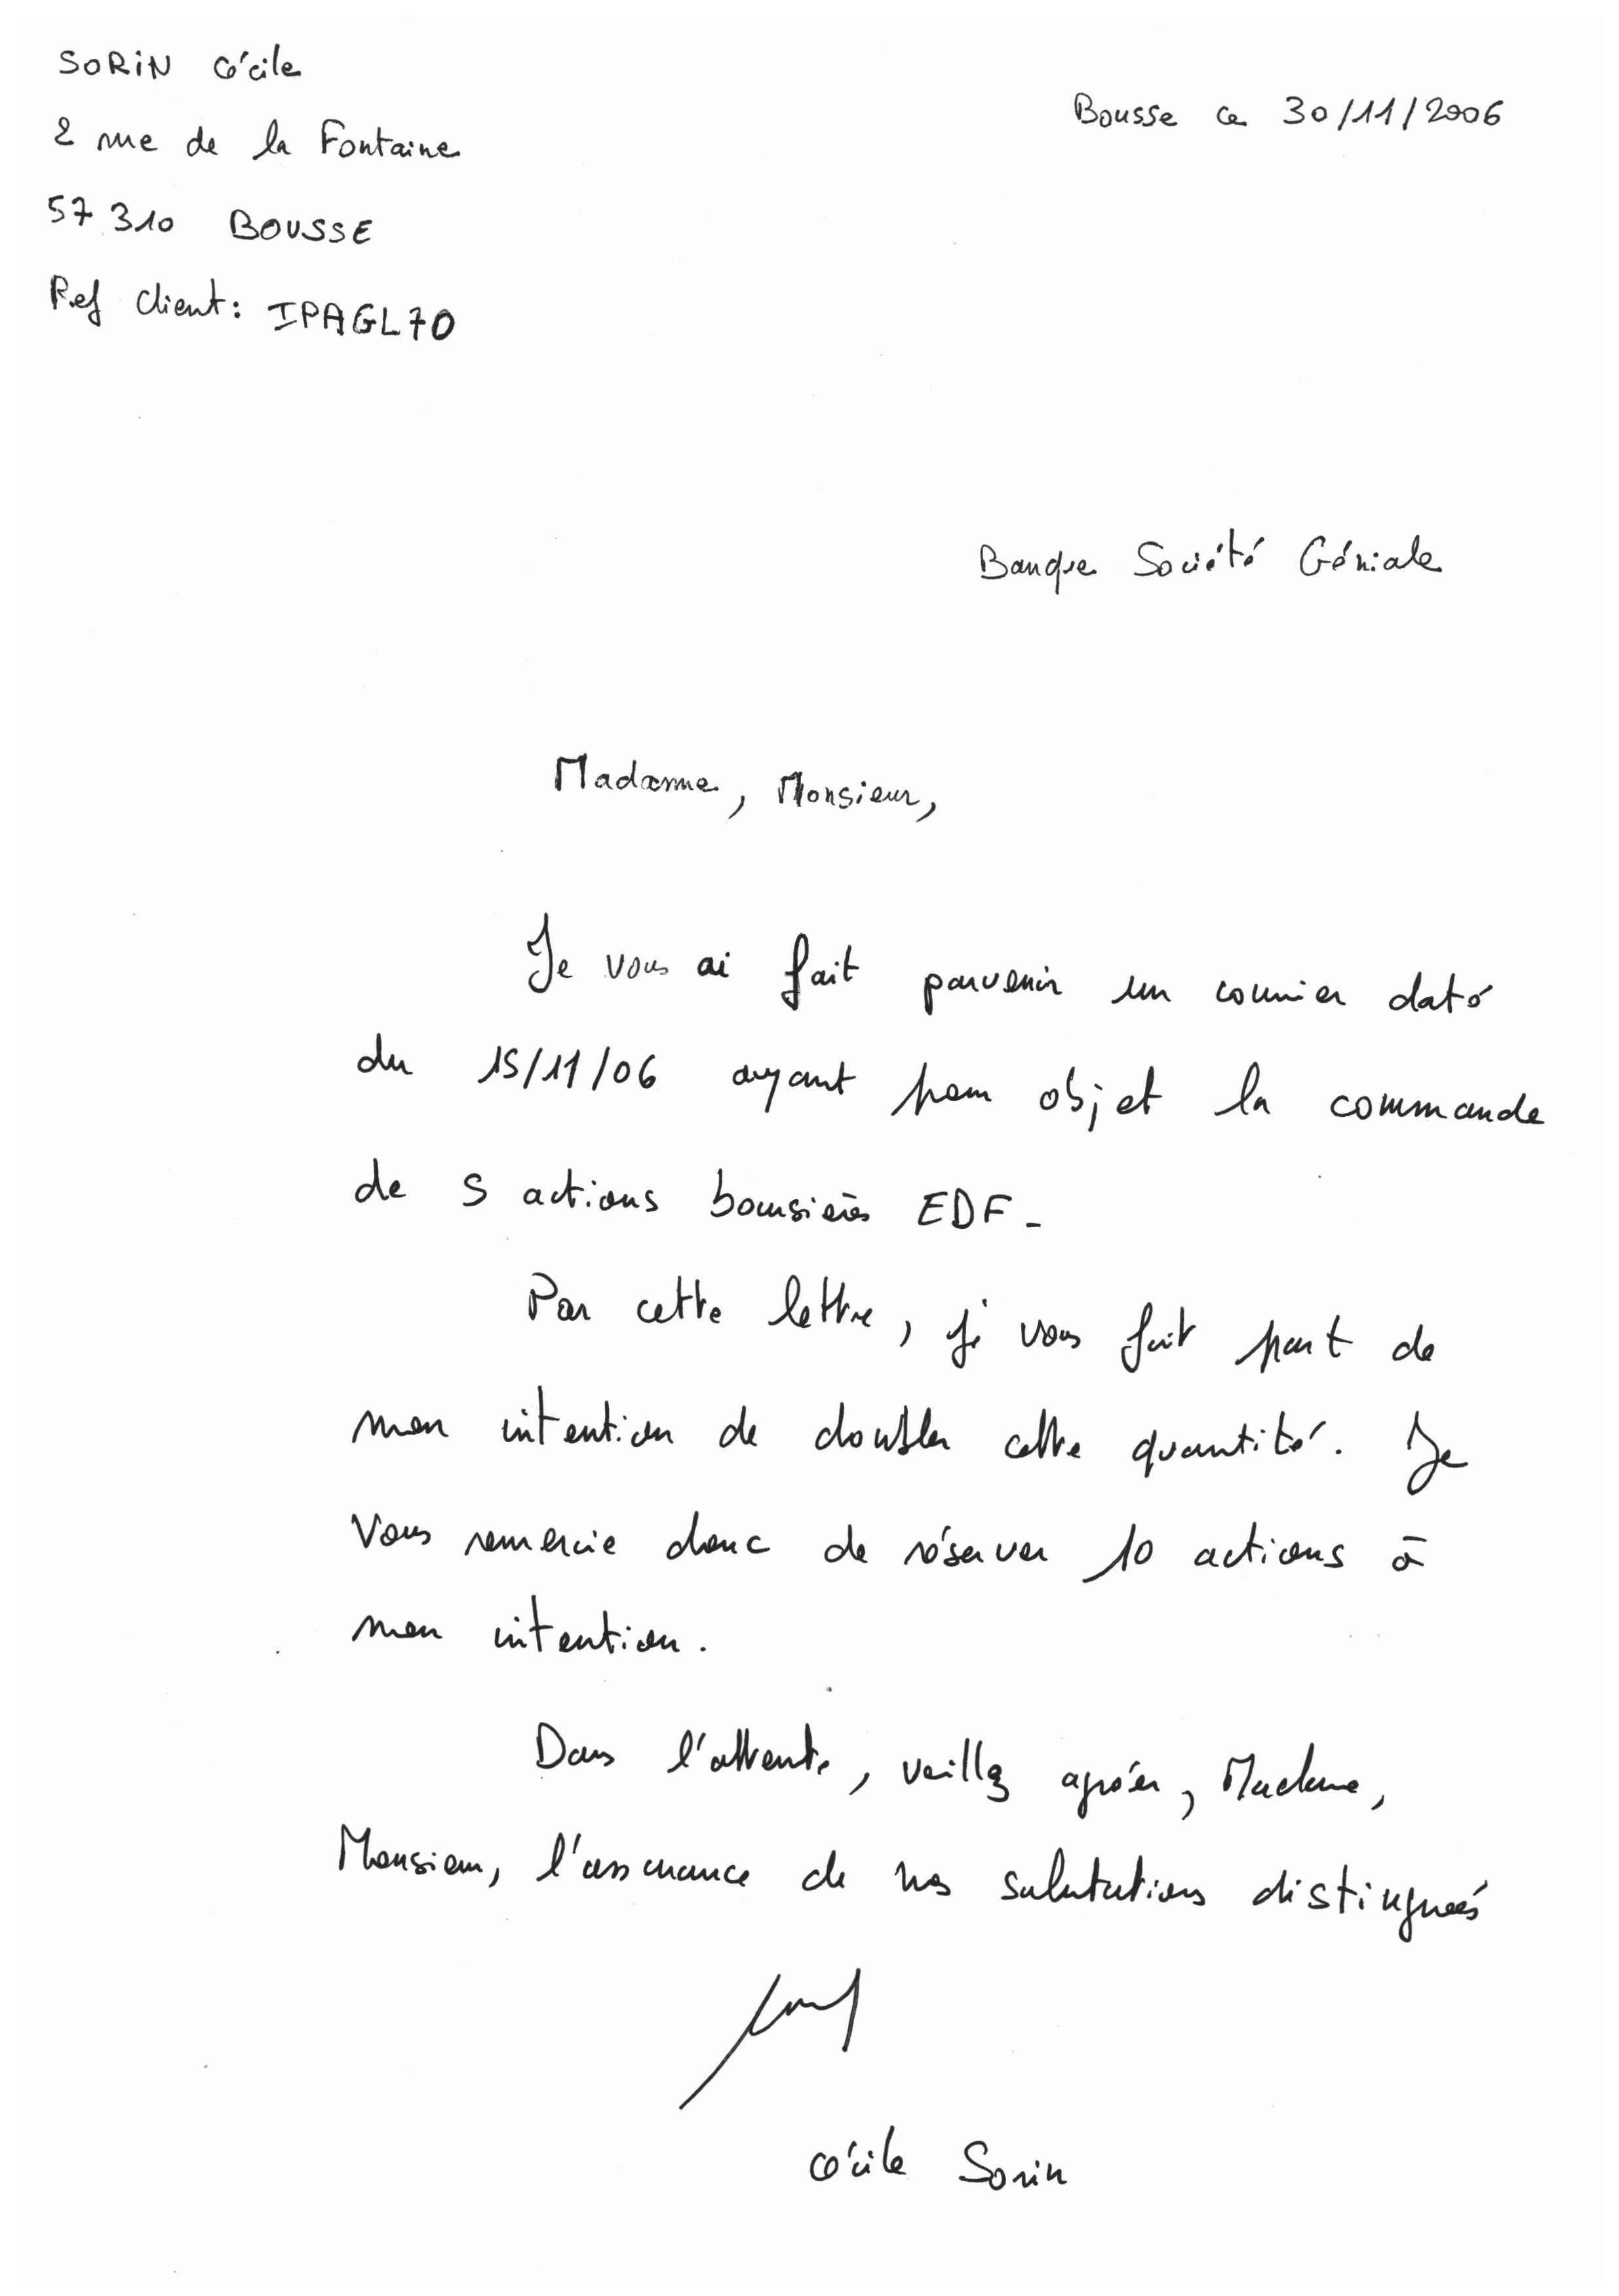 SORIN Cécile
Bousse ce 30/11/2006
2 rue de la Fontaine
57 310 BOUSSE
Ref client: IPAGL70
Banque Société Géniale
Madame, Monsieur,
Je vous ai fait parvenir un courrier daté
du 15/11/06 ayant pour objet la commande
de 5 actions boursières EDF.
Par cette lettre, je vous fait part de
mon intention de doubler cette quantité. Je
vous remercie donc de réserver 10 actions à
mon intention.
Dans l'attente, veillez agréer, Madame,
Monsieur, l'assurance de nos salutations distinguées
Cécile Sorin